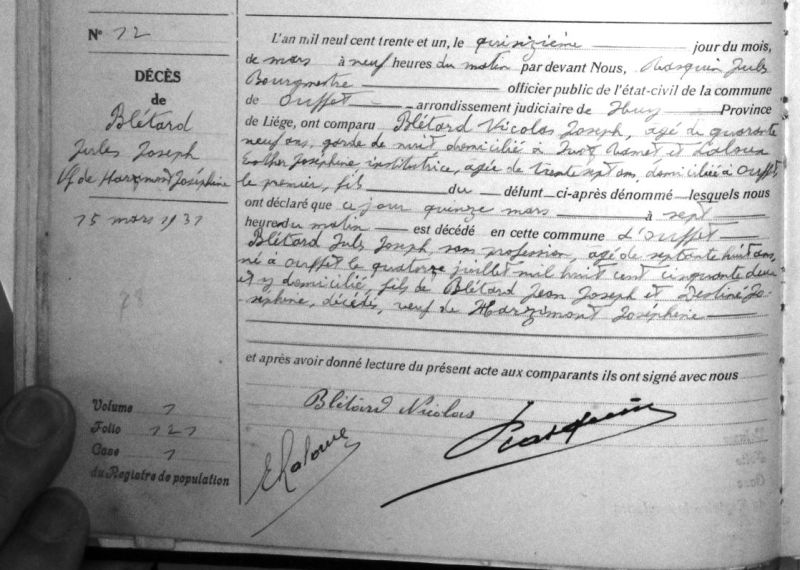 N° 12
DÉCÈS
de
Blétard
Jules Joseph
Vf de Harzimont Joséphine
15 mars 1931
Volume 1
Folio 121
Case 1
du Registre de population
L'an mil neuf cent trente et un, le jour du mois,
de mars à neuf heures du matin par devant Nous, Jules
Bourgmestre officier public de l'état-civil de la commune
de Ouffet arrondissement judiciaire de Huy Province
de Liége, ont comparu Blétard Nicolas Joseph, agé de quarante
neuf ans, garde de nuit domicilié à Ramet et
Esther Joséphine institutrice, agée de trente sept ans, domiciliée à Ouffet,
le premier, fils du défunt ci-après dénommé lesquels nous
ont déclaré que ce jour quinze mars à sept
heures du matin est décédé en cette commune d'Ouffet
Blétard Jules Joseph, sans profession, agé de septante huit ans,
né à Ouffet le quatorze juillet mil huit cent cinquante deux
et y domicilié, fils de Blétard Jean Joseph et Destiné Jo-
sephine, décédés, veuf de Harzimont Joséphine
et après avoir donné lecture du présent acte aux comparants ils ont signé avec nous
Blétard Nicolas